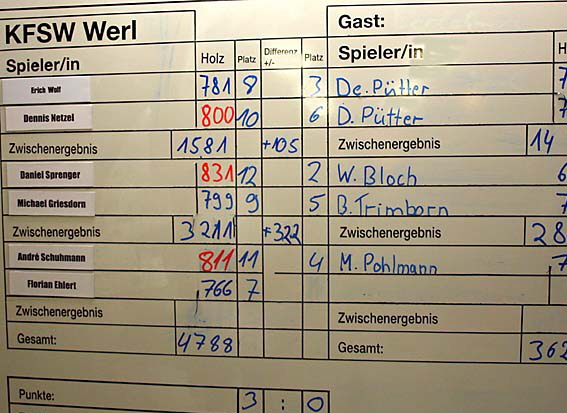 KFSW Werl Gast:
Spieler/in Holz Platz Differenz +/- Platz Spieler/in H
Erich Wolf 781 8 3 De. Pütter 7
Dennis Netzel 800 10 6 D. Pütter 7
Zwischenergebnis 1581 +105 Zwischenergebnis 14
Daniel Sprenger 831 12 2 W. Bloch 6
Michael Griesdorn 799 9 5 B. Trimborn 7
Zwischenergebnis 3211 +322 Zwischenergebnis 28
André Schuhmann 811 11 4 M. Pohlmann 7
Florian Ehlert 766 7
Zwischenergebnis Zwischenergebnis
Gesamt: 4788 Gesamt: 362
Punkte: 3 : 0